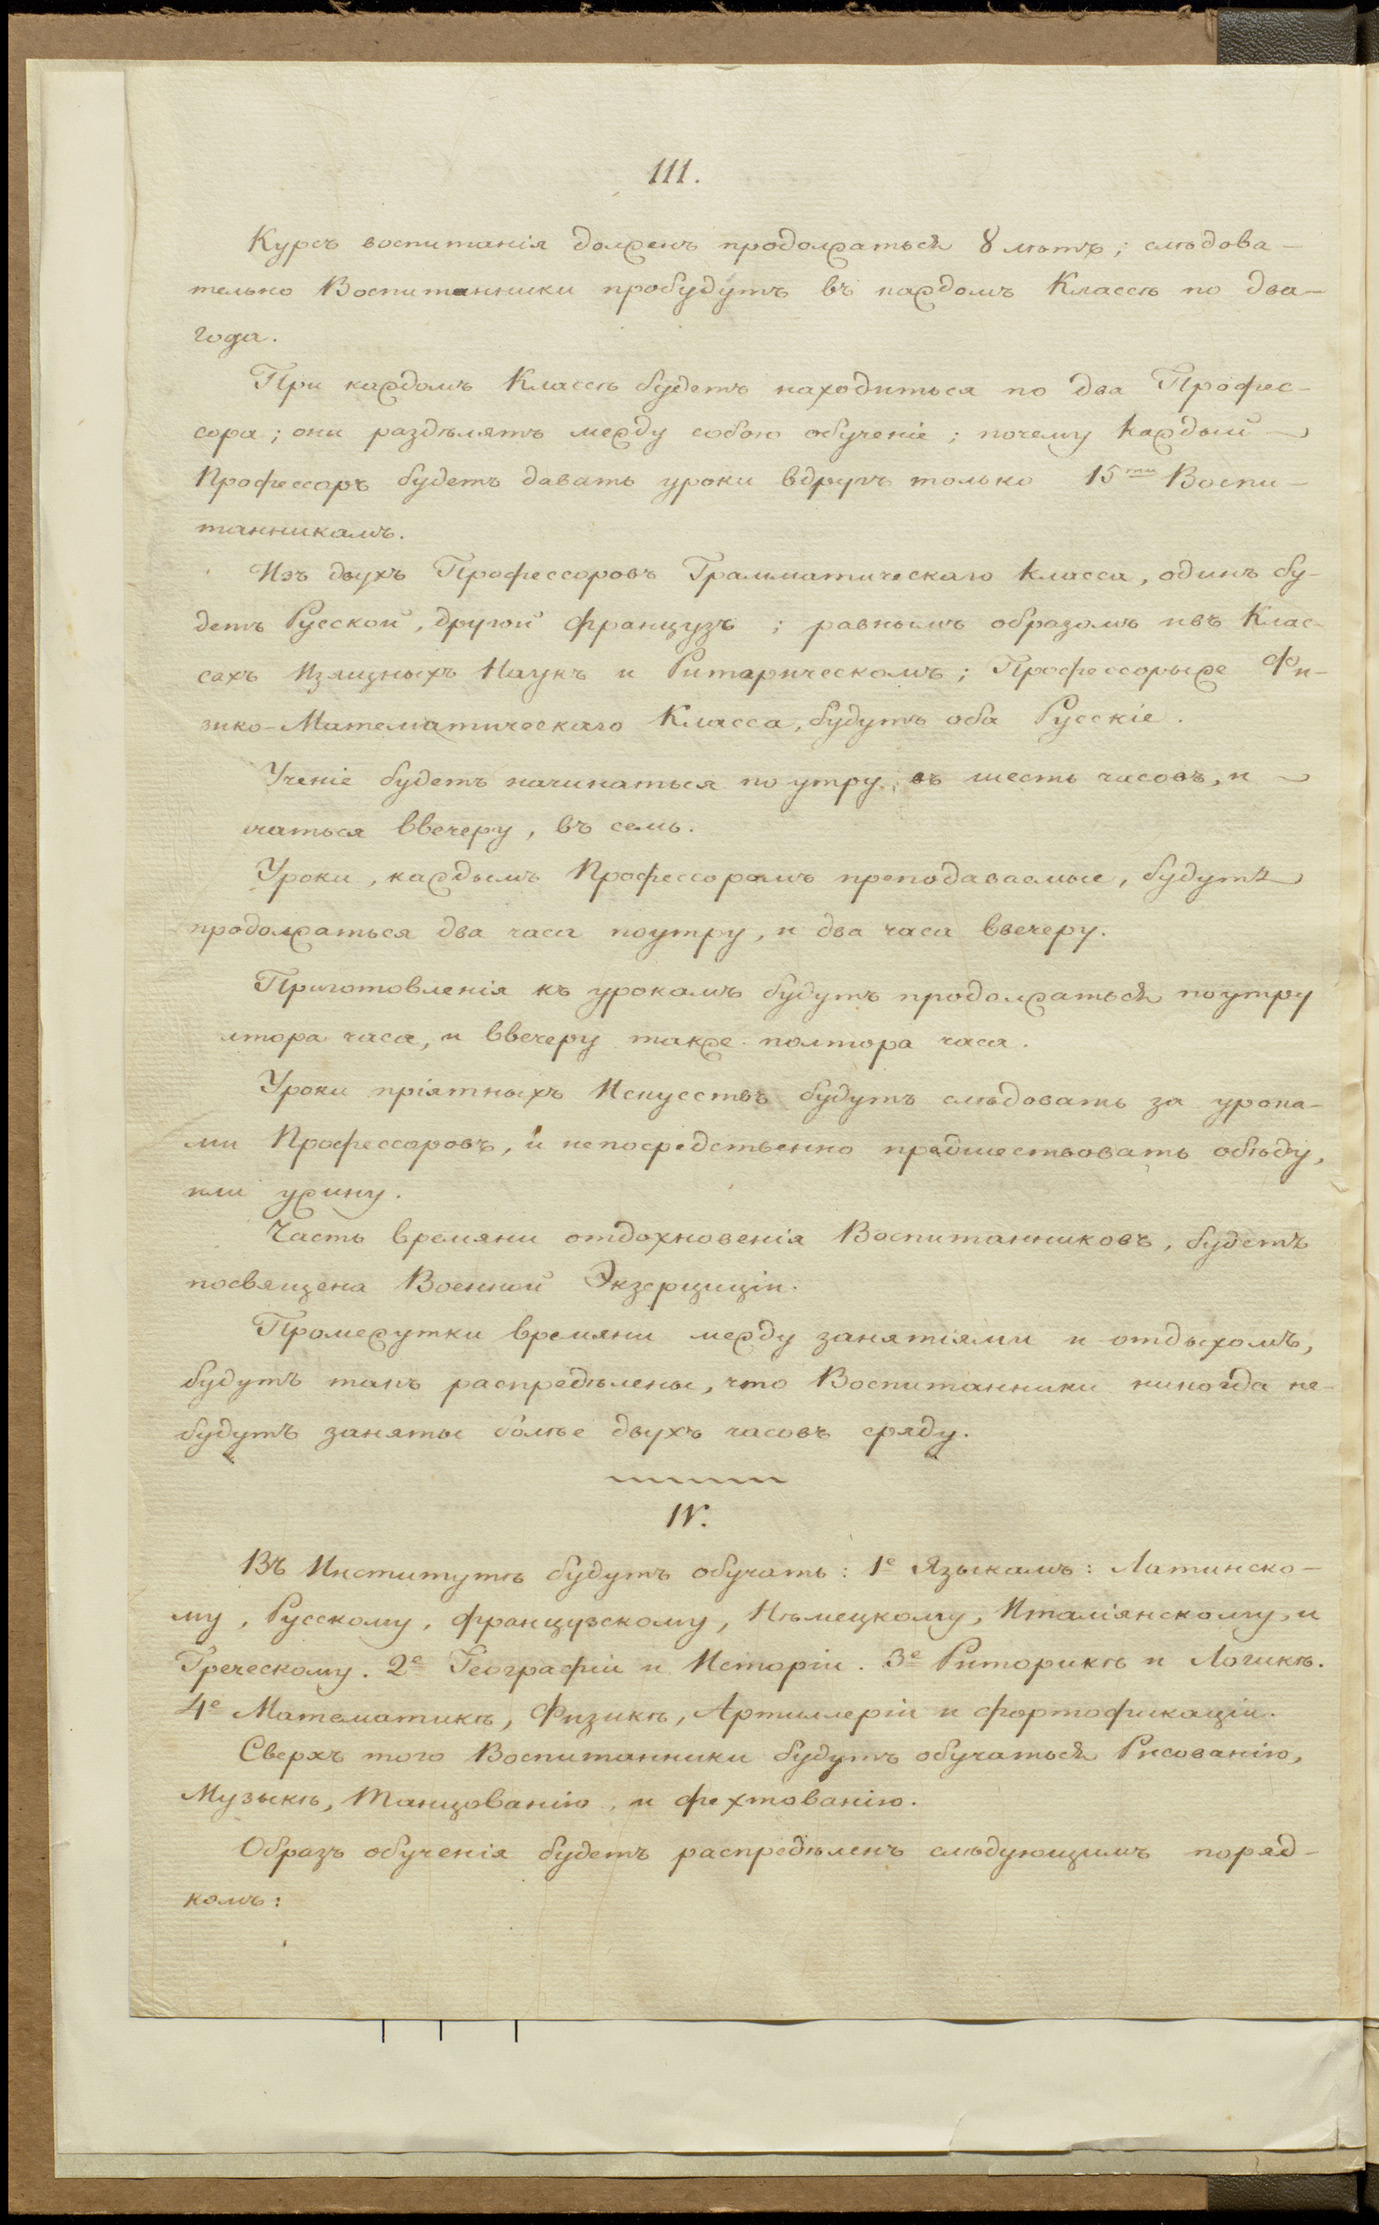 III.
Курсъ воспитанія долженъ продолжаться 8 лѣтъ; слѣдова-
тельно Воспитанники пробудутъ въ каждомъ Классѣ по два-
года.
При каждомъ Классѣ будетъ находиться по два Профес-
сора; они раздѣлятъ между собою обученіе; почему каждый
Профессоръ будетъ давать уроки вдругъ только 15ти Воспи-
танникамъ.
Изъ двухъ Профессоровъ Грамматическаго Класса, одинъ бу-
детъ Русской, другой Французъ; равнымъ образомъ ивъ Клас-
сахъ Изящныхъ Наукъ и Риторическомъ; Профессорыже Фи-
зико-Математическаго Класса, будутъ оба Русскіе.
Ученіе будетъ начинаться поутру, въ шесть часовъ, и
чаться ввечеру, въ семь.
Уроки, каждымъ Профессоромъ преподаваемые, будутъ
продолжаться два часа поутру, и два часа ввечеру.
Приготовленія къ урокамъ будутъ продолжаться поутру
лтора часа, и ввечеру также полтора часа.
Уроки пріятныхъ Искусствъ будутъ слѣдовать за урока-
ми Профессоровъ, и непосредственно предшествовать обѣду,
или ужину.
Часть времяни отдохновенія Воспитанниковъ, будетъ
посвящена Военной Экзерциціи.
Промежутки времяни между занятіями и отдыхомъ,
будутъ такъ распредѣлены, что Воспитанники никогда не-
будутъ заняты болѣе двухъ часовъ сряду.
IV.
Въ Институтѣ будутъ обучать: 1е Языкамъ: Латинско-
му, Русскому, Французскому, Нѣмецкому, Италіянскому, и
Греческому. 2е Географіи и Исторіи. 3е Риторикѣ и Логикѣ.
4е Математикѣ, Физикѣ, Артиллеріи и Фортофикаціи.
Сверхъ того Воспитанники будутъ обучаться Рисованію,
Музыкѣ, Танцованію, и фехтованію.
Образъ обученія будетъ распредѣленъ слѣдующимъ поряд-
комъ: